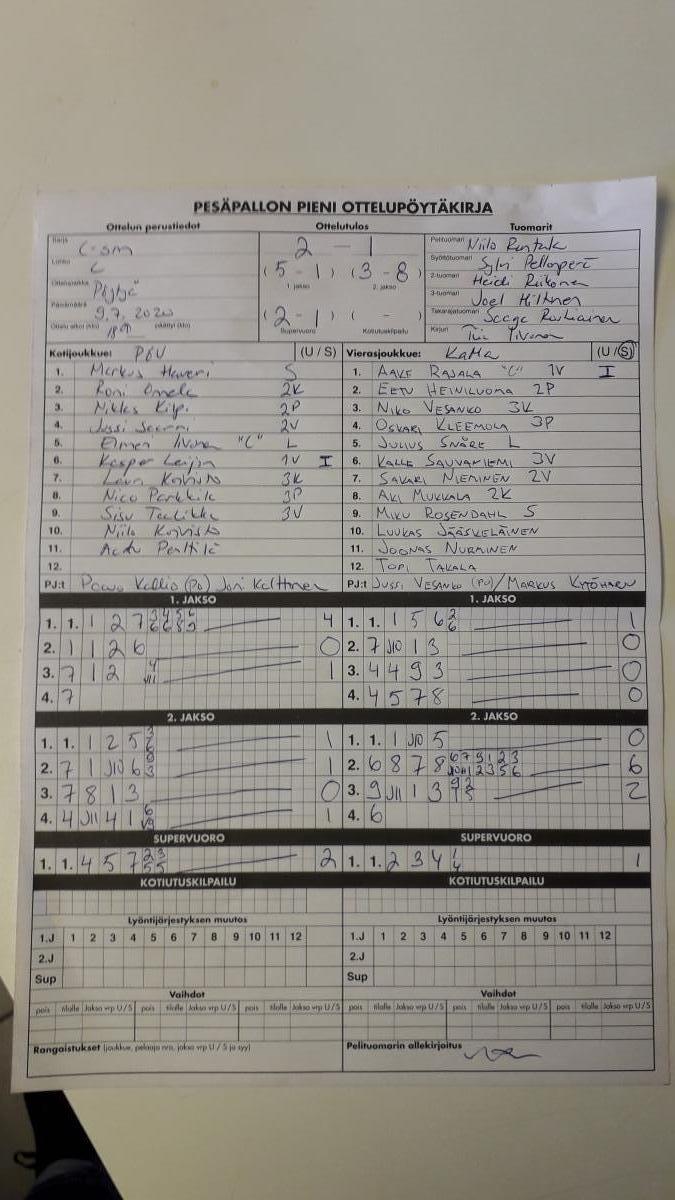 PESÄPALLON PIENI OTTELUPÖYTÄKIRJA
Ottelun perustiedot Ottelutulos Tuomarit
Sarja C-SM
Lohko C
Ottelupaikka
Päivämäärä 9.7.2020
Ottelu alkoi (klo) päättyi (klo)
2 - 1
(5 - 1) (3 - 8)
1. jakso 2. jakso
(2 - 1) ( - )
Supervuoro Kotiutuskilpailu
Pelituomari Niilo
Syöttötuomari Sylvi Pellonperä
2-tuomari Heidi Riikonen
3-tuomari Joel Hiltunen
Takarajatuomari
Kirjuri
Kotijoukkue: PöU (U / S)
1. Markus Haveri S
2. Roni Omela 2K
3. Niklas Kilpi 2P
4. Jussi 2V
5. Elmeri "C" L
6. Kasper 1V I
7. Koivisto 3K
8. Nico 3P
9. Sisu 3V
10. Niilo Koivisto
11. Penttilä
12.
PJ:t Paavo Kallio (PJ) Joni
Vierasjoukkue: KaMa (U / S)
1. AAKE RAJALA "C" 1V I
2. EETU HEINILUOMA 2P
3. NIKO VESANKO 3K
4. OSKARI KLEEMOLA 3P
5. JULIUS SNÅRE L
6. KALLE SAUVANIEMI 3V
7. SAKARI NIEMINEN 2V
8. AKI MUKKALA 2K
9. MIKU ROSENDAHL S
10. LUUKAS JÄÄSKELÄINEN
11. JOONAS NURMINEN
12. TOPI TAKALA
PJ:t JUSSI VESANKO (PJ) / MARKUS KYTÖHARJU
1. JAKSO 1. JAKSO
1. 1. 1 2 7 4
2. 1 1 2 6 0
3. 7 1 2 1
4. 7
1. 1. 1 5 6 1
2. 7 J10 1 3 0
3. 4 4 9 3 0
4. 4 5 7 8 0
2. JAKSO 2. JAKSO
1. 1. 1 2 5 1
2. 7 1 J10 6 1
3. 7 8 1 3 0
4. 4 J11 4 1 1
1. 1. 1 J10 5 0
2. 6 8 7 8 6
3. 9 J11 1 3 2
4. 6
SUPERVUORO SUPERVUORO
1. 1. 4 5 7 2
1. 1. 2 3 4 1
KOTIUTUSKILPAILU KOTIUTUSKILPAILU
Lyöntijärjestyksen muutos Lyöntijärjestyksen muutos
1.J 1 2 3 4 5 6 7 8 9 10 11 12
2.J
Sup
1.J 1 2 3 4 5 6 7 8 9 10 11 12
2.J
Sup
Vaihdot Vaihdot
pois tilalle Jakso vrp U/S pois tilalle Jakso vrp U/S pois tilalle Jakso vrp U/S pois tilalle Jakso vrp U/S
Rangaistukset (joukkue, pelaaja nro, jakso vrp U / S ja syy)
Pelituomarin allekirjoitus